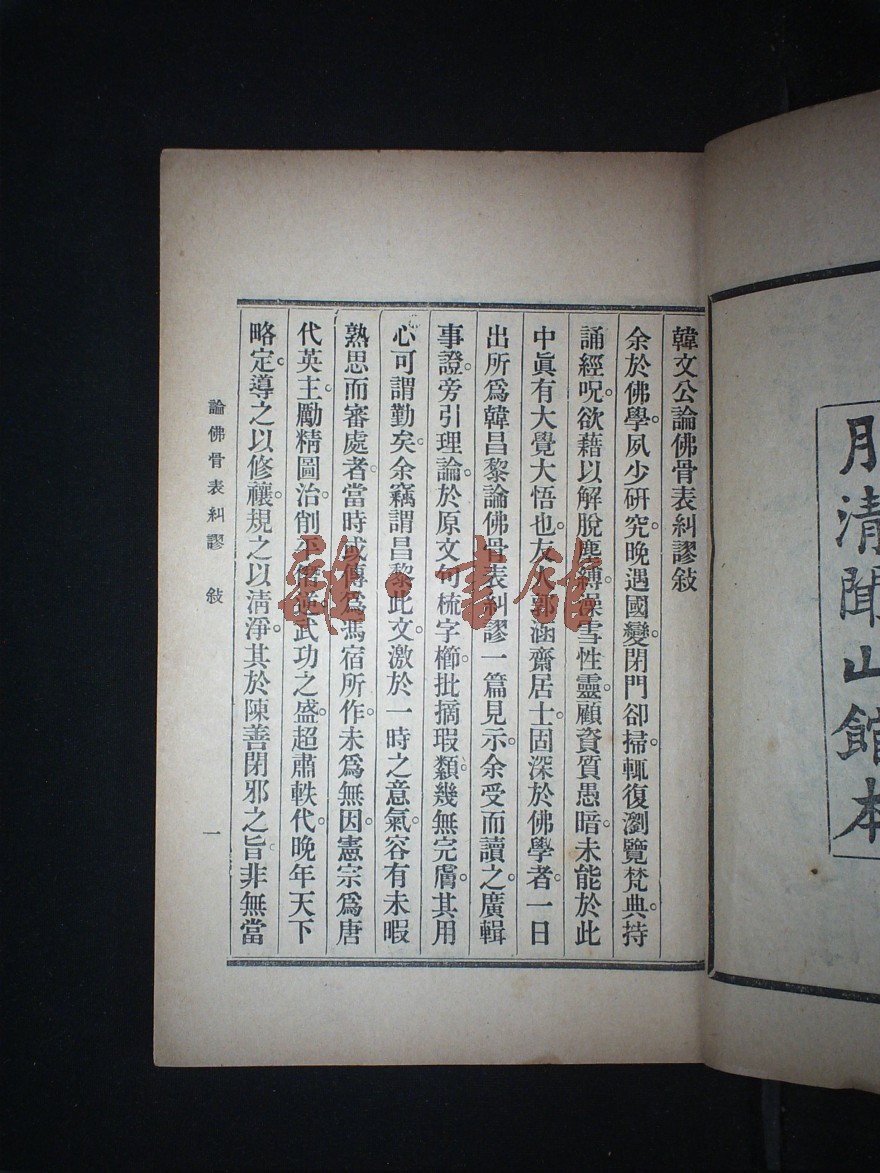 月清聞山館本
韓文公論佛骨表糾謬敍
余於佛學。夙少研究。晚遇國變。閉門卻掃。輒復瀏覽梵典。持
誦經呪。欲藉以解脫塵縛。澡雪性靈。顧資質愚暗。未能於此
中眞有大覺大悟也。友人郭涵齋居士。固深於佛學者。一日
出所爲韓昌黎論佛骨表糾謬一篇見示。余受而讀之。廣輯
事證。旁引理論。於原文句梳字櫛。批摘瑕纇。幾無完膚。其用
心可謂勤矣。余竊謂昌黎此文。激於一時之意氣。容有未暇
熟思而審處者。當時或傳爲馮宿所作。未爲無因。憲宗爲唐
代英主。勵精圖治。削平僭逆。武功之盛。超肅軼代。晚年天下
略定。導之以修禳。規之以清淨。其於陳善閉邪之旨。非無當
論佛骨表糾謬　敍
一
雜·書館